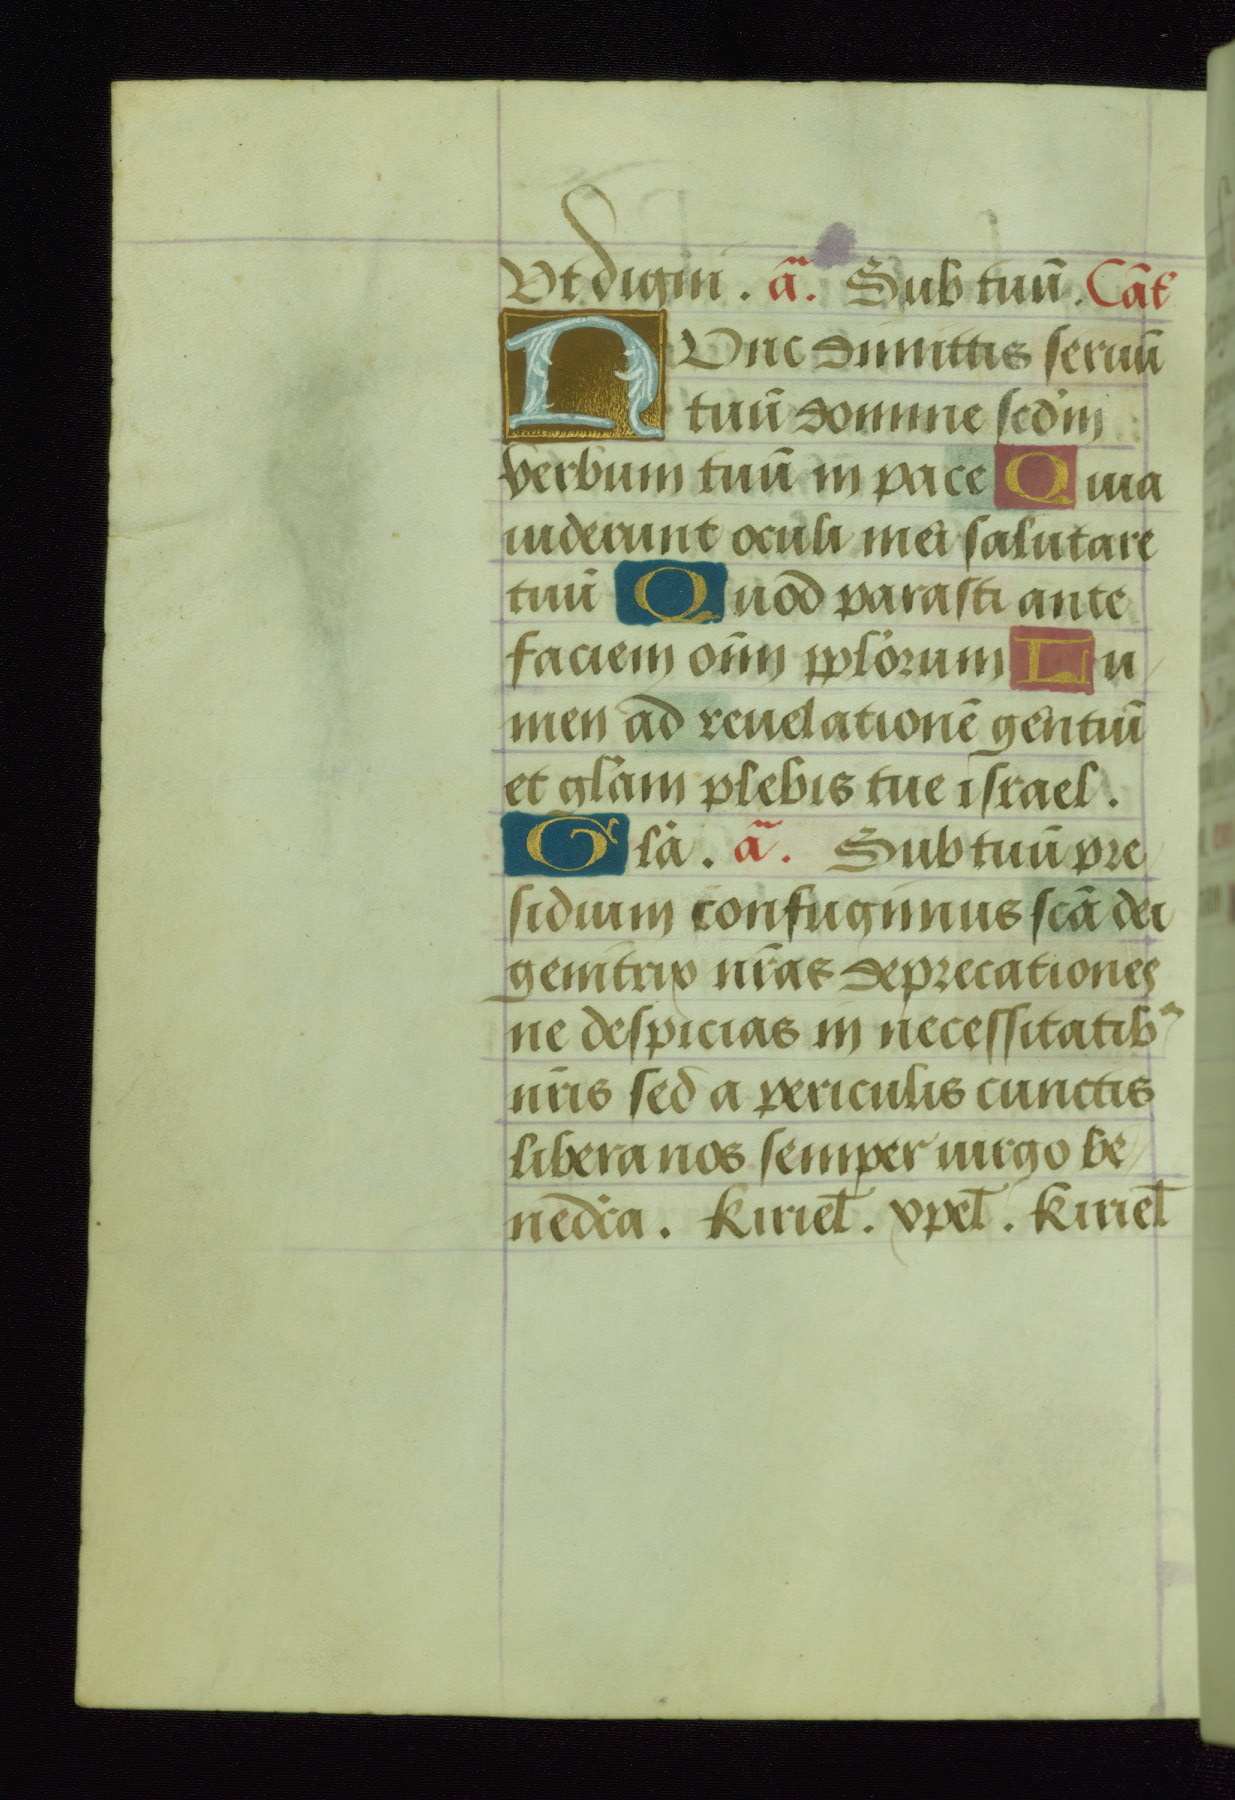 Vt digni . ã. Sub tuũ . Cãt
NVnc dimittis seruũ
tuũ domine scd'm
verbum tuũ in pace Quia
uiderunt oculi mei salutare
tuũ Quod parasti ante
faciem oĩm pplõrum Lu
men ad reuelationẽ gentiũ
et glãm plebis tue israel .
Glã . ã. Sub tuũ pre
sidium confugimus scã dei
genitrix nr̃as deprecationes
ne despicias in necessitatib9
nr̃is sed a periculis cunctis
libera nos semper uirgo be
nedc̃a . kiriel̃ . xpel̃ . kiriel̃